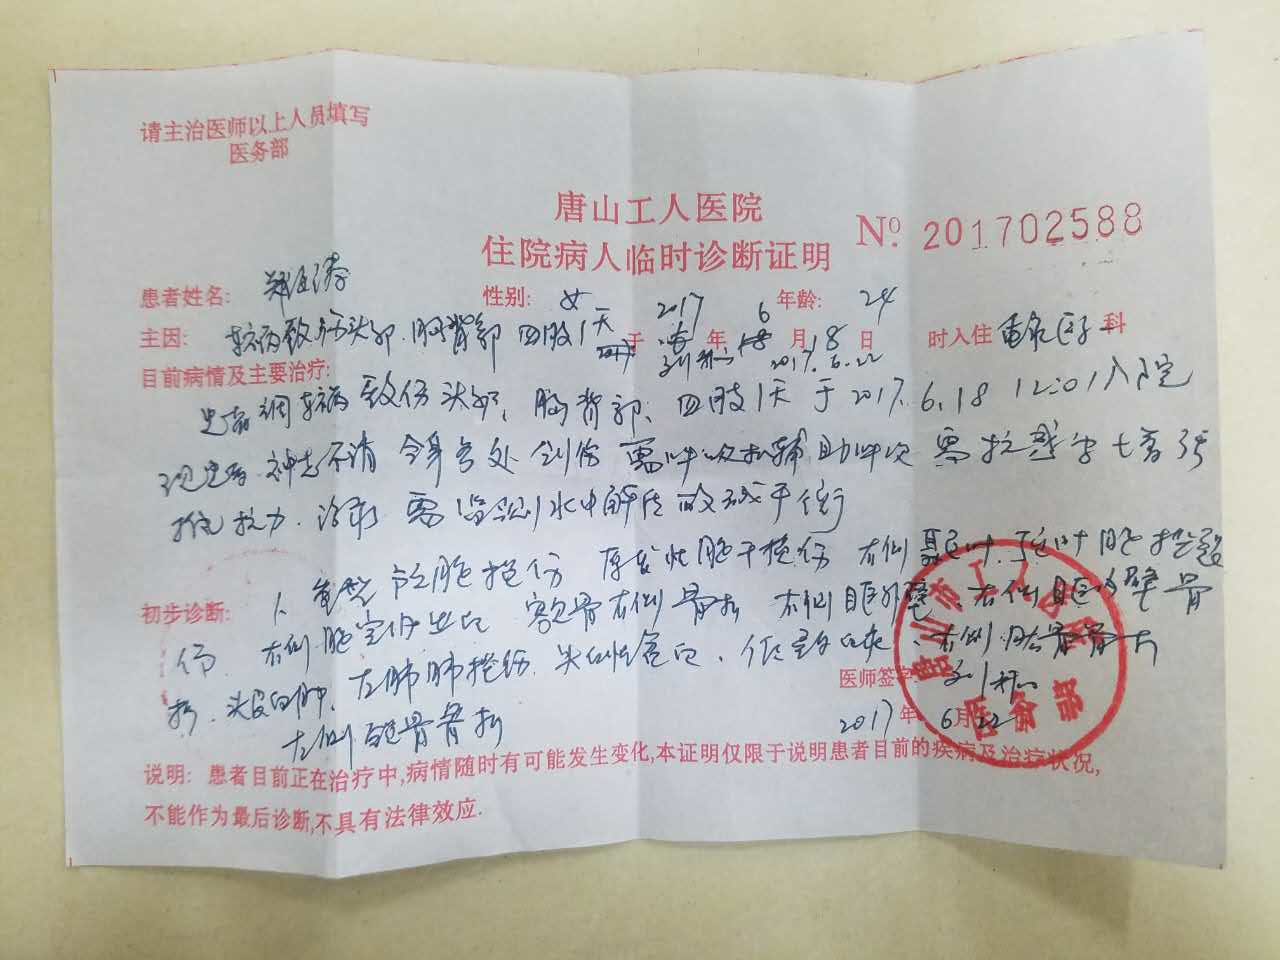 请主治医师以上人员填写
医务部
唐山工人医院
住院病人临时诊断证明
No. 201702588
患者姓名: 性别: 女 年龄: 24
主因: 车祸致伤头部、胸背部、四肢1天 于 2017 年 6 月 18 日 时入住 重症医学 科
2017.6.22
目前病情及主要治疗:
患者调车祸致伤头部、胸背部、四肢1天于2017.6.18 12:01入院
现患者神志不清 全身多处创伤 需呼吸机辅助呼吸 需抗感染
治疗 需监测水电解质酸碱平衡
初步诊断: 1、重型 脑挫伤 原发性脑干挫伤 右侧
伤 右侧脑室 出血 额骨右侧骨折 右侧眶外壁、右侧眶内壁骨
折、头皮血肿、左肺肺挫伤、失血性贫血、低蛋白血症、右侧肱骨骨折
左侧 骨骨折
医师签字
2017 年 6 月 22
唐山市工人医院
医务部
说明: 患者目前正在治疗中,病情随时有可能发生变化,本证明仅限于说明患者目前的疾病及治疗状况,
不能作为最后诊断,不具有法律效应.